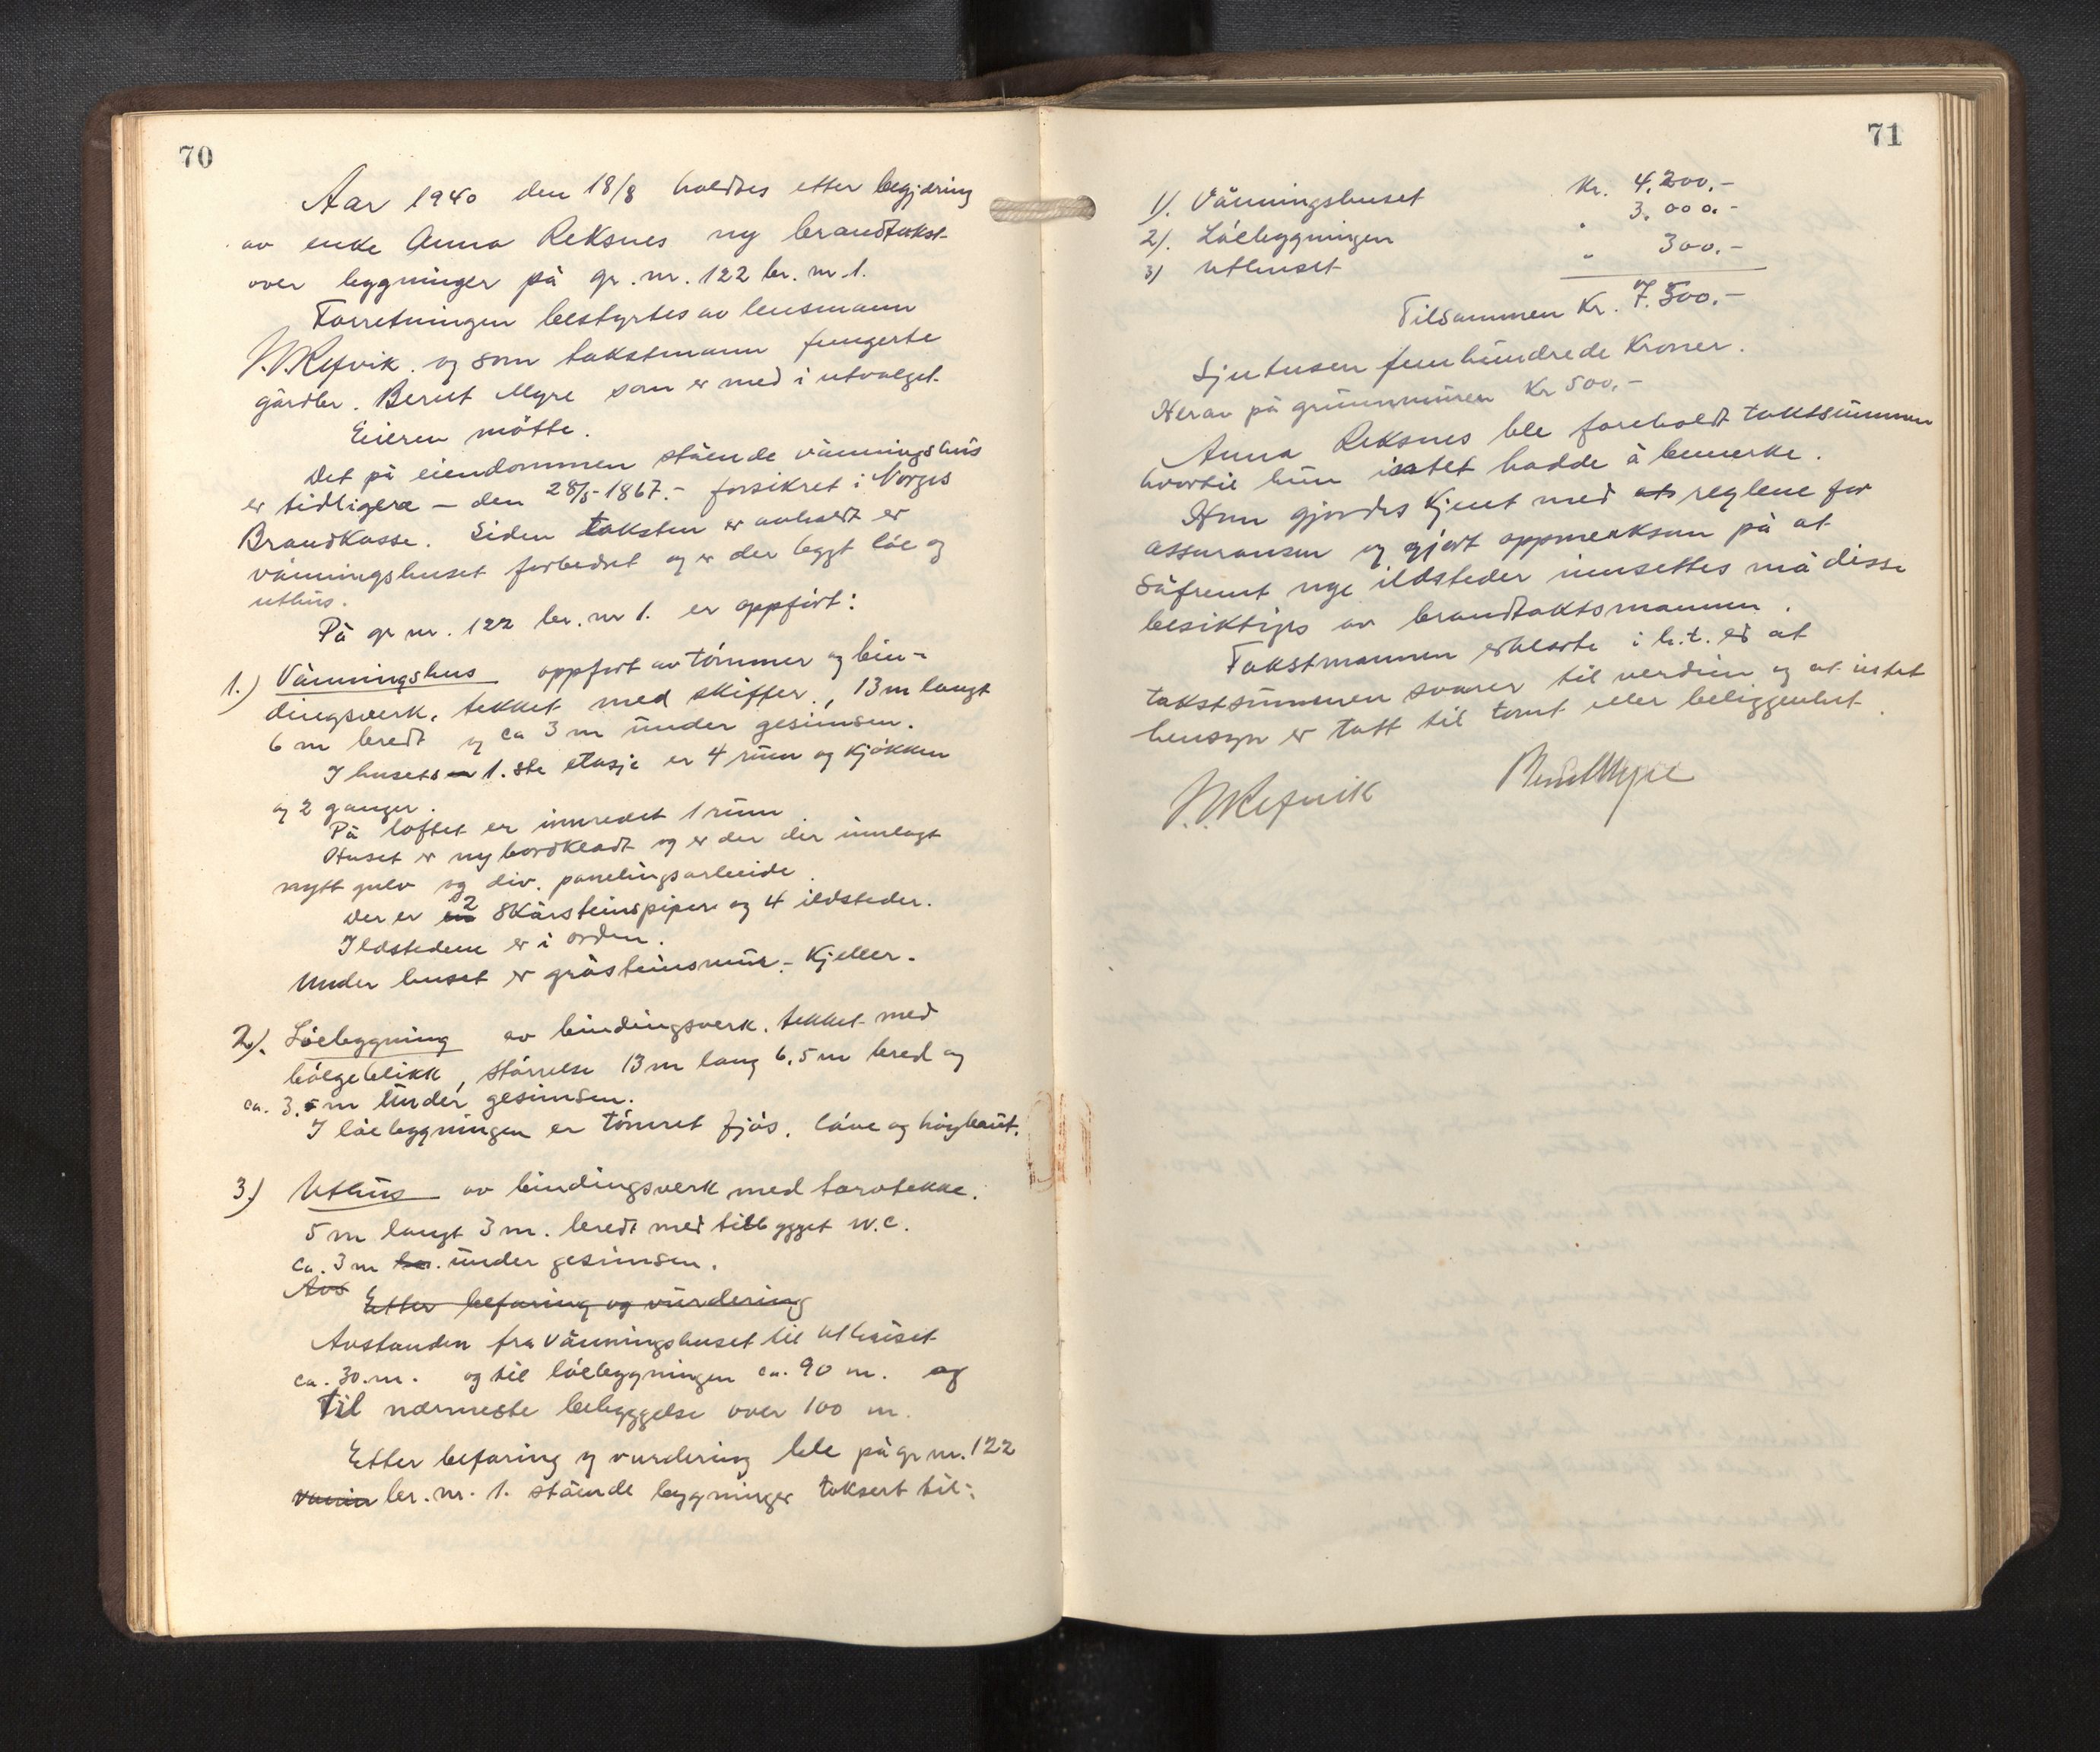 70
Aar 1940 den 18/8 holdtes etter begjæring
av enke Anna Reksnes ny brandtakst
over bygninger på gr. nr. 122 br. nr. 1.
Forretningen bestyrtes av lensmann
Refvik. og som takstmann fungerte
gårdbr. Bernt Myre som er med i utvalget.
Eieren mötte.
Det på eiendommen stående våningshus
er tidligere – den 28/5-1867.- forsikret i Norges
Brandkasse. Siden taksten er avholdt er
våningshuset forbedret og er der bygt löe og
uthus.
På gr nr. 122 br. nr 1. er oppfört:
1.) Våningshus oppfört av tömmer og bin-
dingsverk, tekket med skiffer, 13 m langt
6 m bredt og ca 3 m under gesimsen.
I husets 1. ste etasje er 4 rum og kjökken
og 2 ganger.
På loftet er innredet 1 rum
Huset er ny bordkledt og er der der innlagt
nytt gulv og div. panelingsarbeide.
Der er 2 skårsteinspiper og 4 ildsteder.
Ildstedene er i orden.
Under huset er gråsteinsmur.- Kjeller.
2). Löebygning av bindingsverk, tekket med
bölgeblikk, störrelse 13 m lang 6,5 m bred og
ca. 3.5 m under gesimsen.
I löebygningen er tömret fjös, låve og höybaut.
3.) Uthus av bindingsverk med torvtekke.
5 m langt 3 m. bredt med tilbygget W.C.
ca. 3 m under gesimsen.
Avs
Etter befaring og vurdering
Avstanden fra våningshuset til uthuset
ca. 30. m. og til löebygningen ca. 90 m. og
til nærmeste bebyggelse over 100 m.
Etter befaring og vurdering ble på gr nr. 122
br. nr. 1. stående bygninger taksert til:
71
1). Våningshuset Kr. 4.200.-
2). Löebygningen " 3.000.-
3) Uthuset " 300.-
Tilsammen Kr. 7.500.-
Sjutusen femhundrede Kroner.
Herav på grunnmuren Kr 500.-
Anna Reksnes ble foreholdt takstsummen
hvortil hun intet hadde å bemerke.
Hun gjordes kjent med reglene for
assuransen og gjort oppmerksom på at
såfremt nye ildsteder innsettes må disse
besiktiges av brandtakstmannen.
Takstmannen erklærte i h.t. ed at
takstsummen svarer til verdien og at intet
hensyn er tatt til tomt eller beliggenhet.
Refvik Bernt Myre